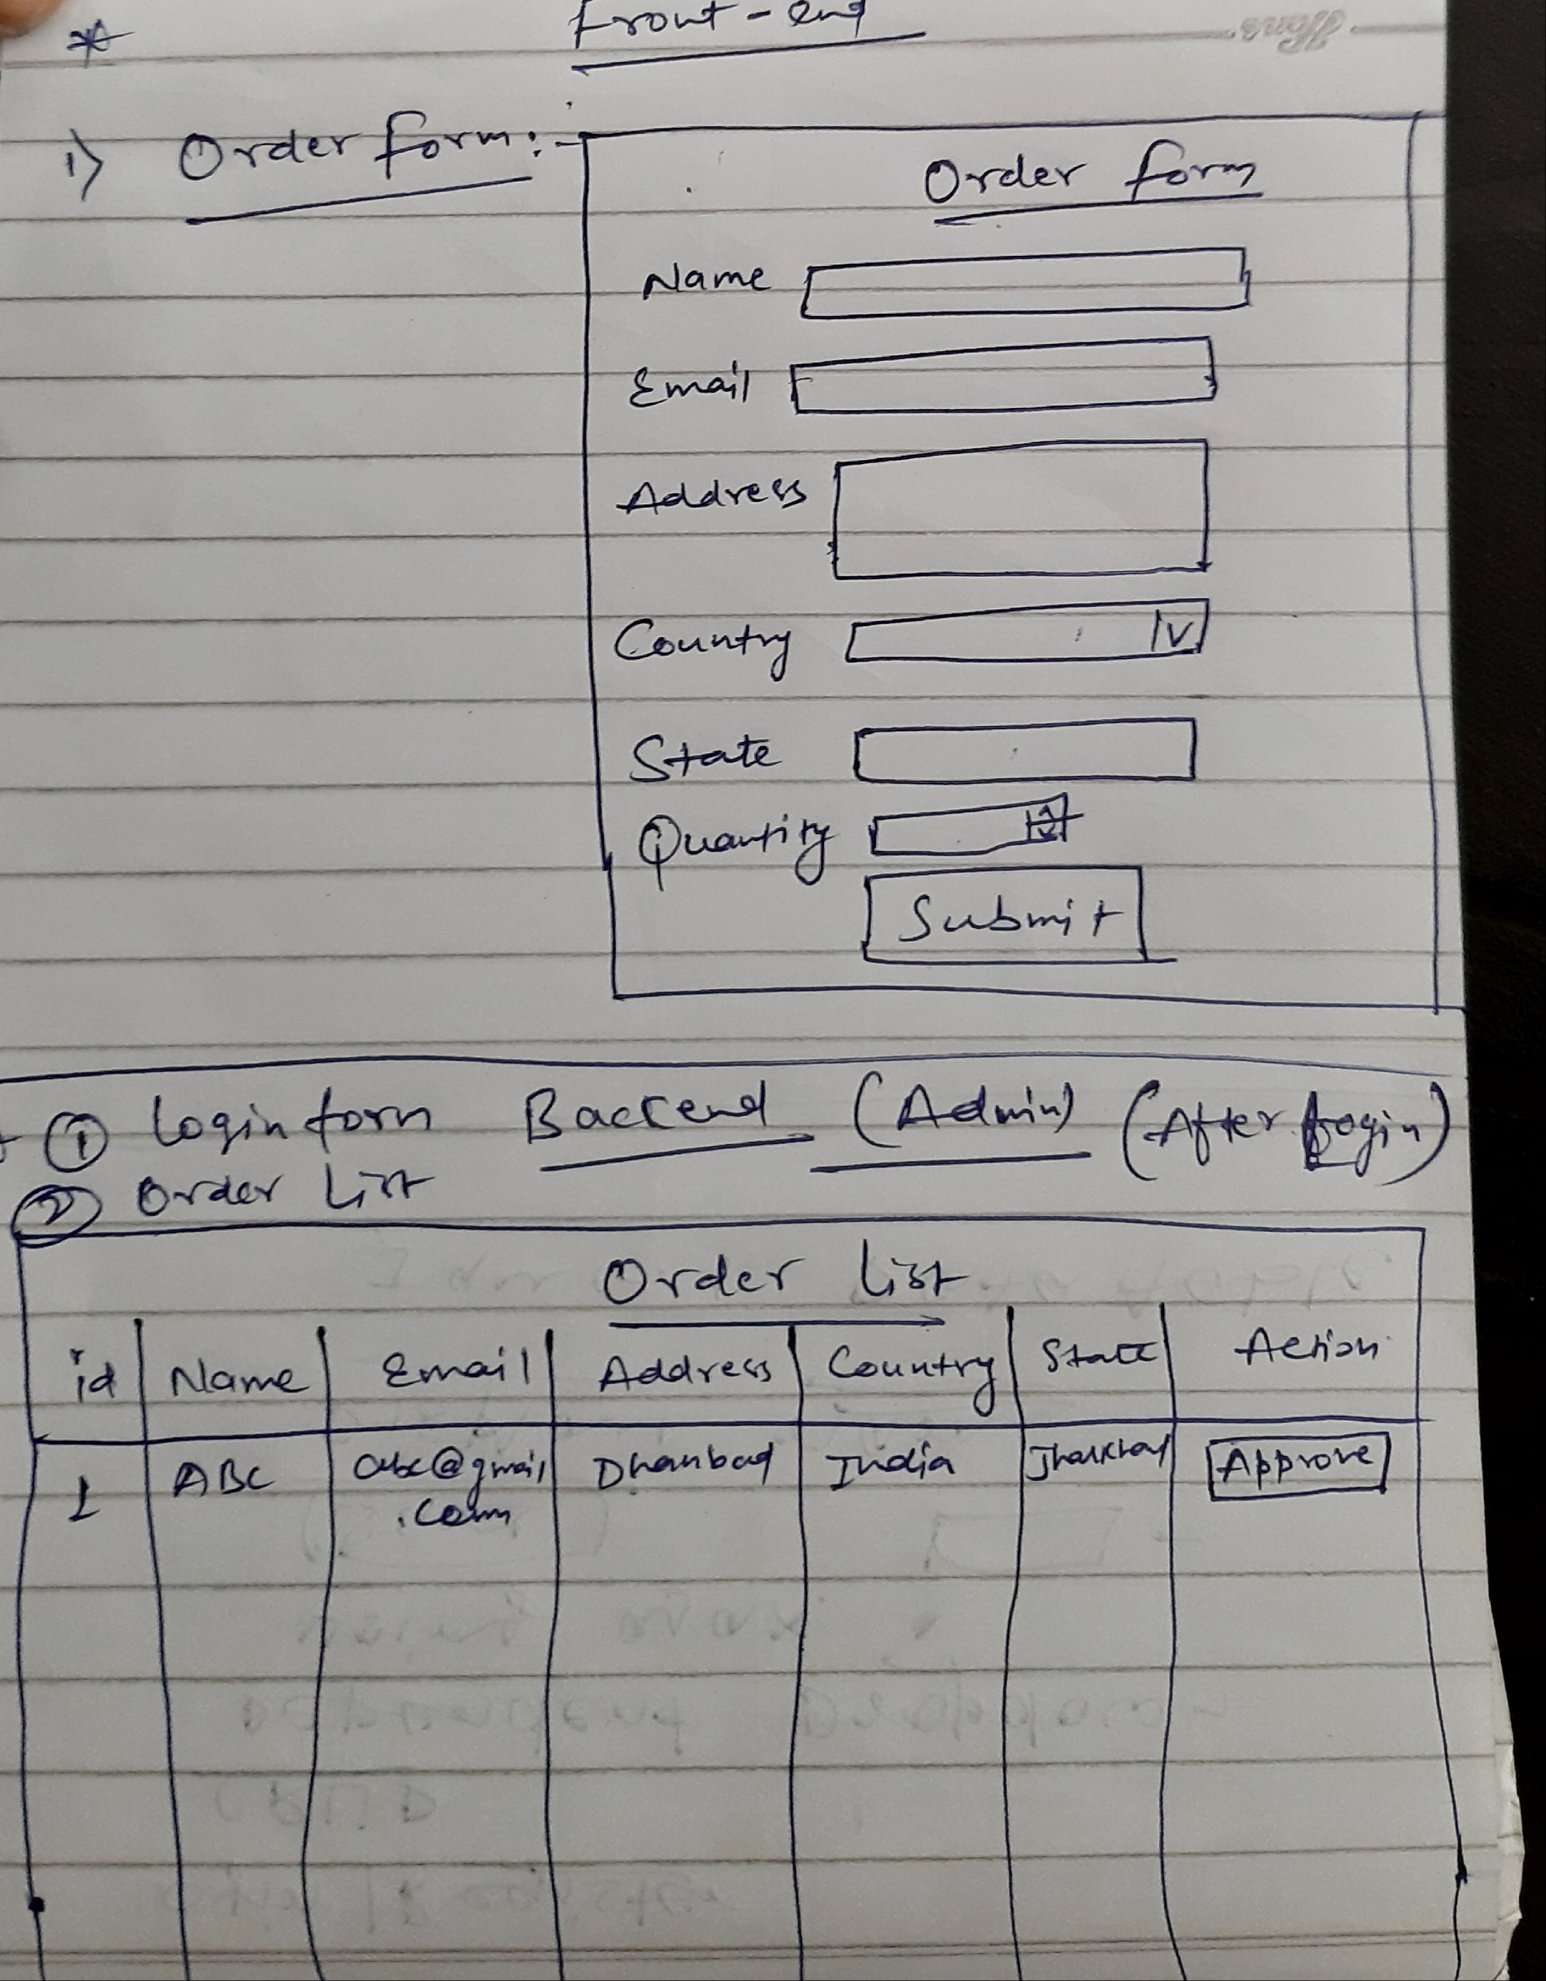 * Front-end
1) Order form:-
Order form
Name
Email
Address
Country
State
Quantity
Submit
① Login form Backend (Admin) (After Login)
② Order List
Order List
id Name Email Address Country State Action
1 ABC abc@gmail Dhanbad India Approve
.com